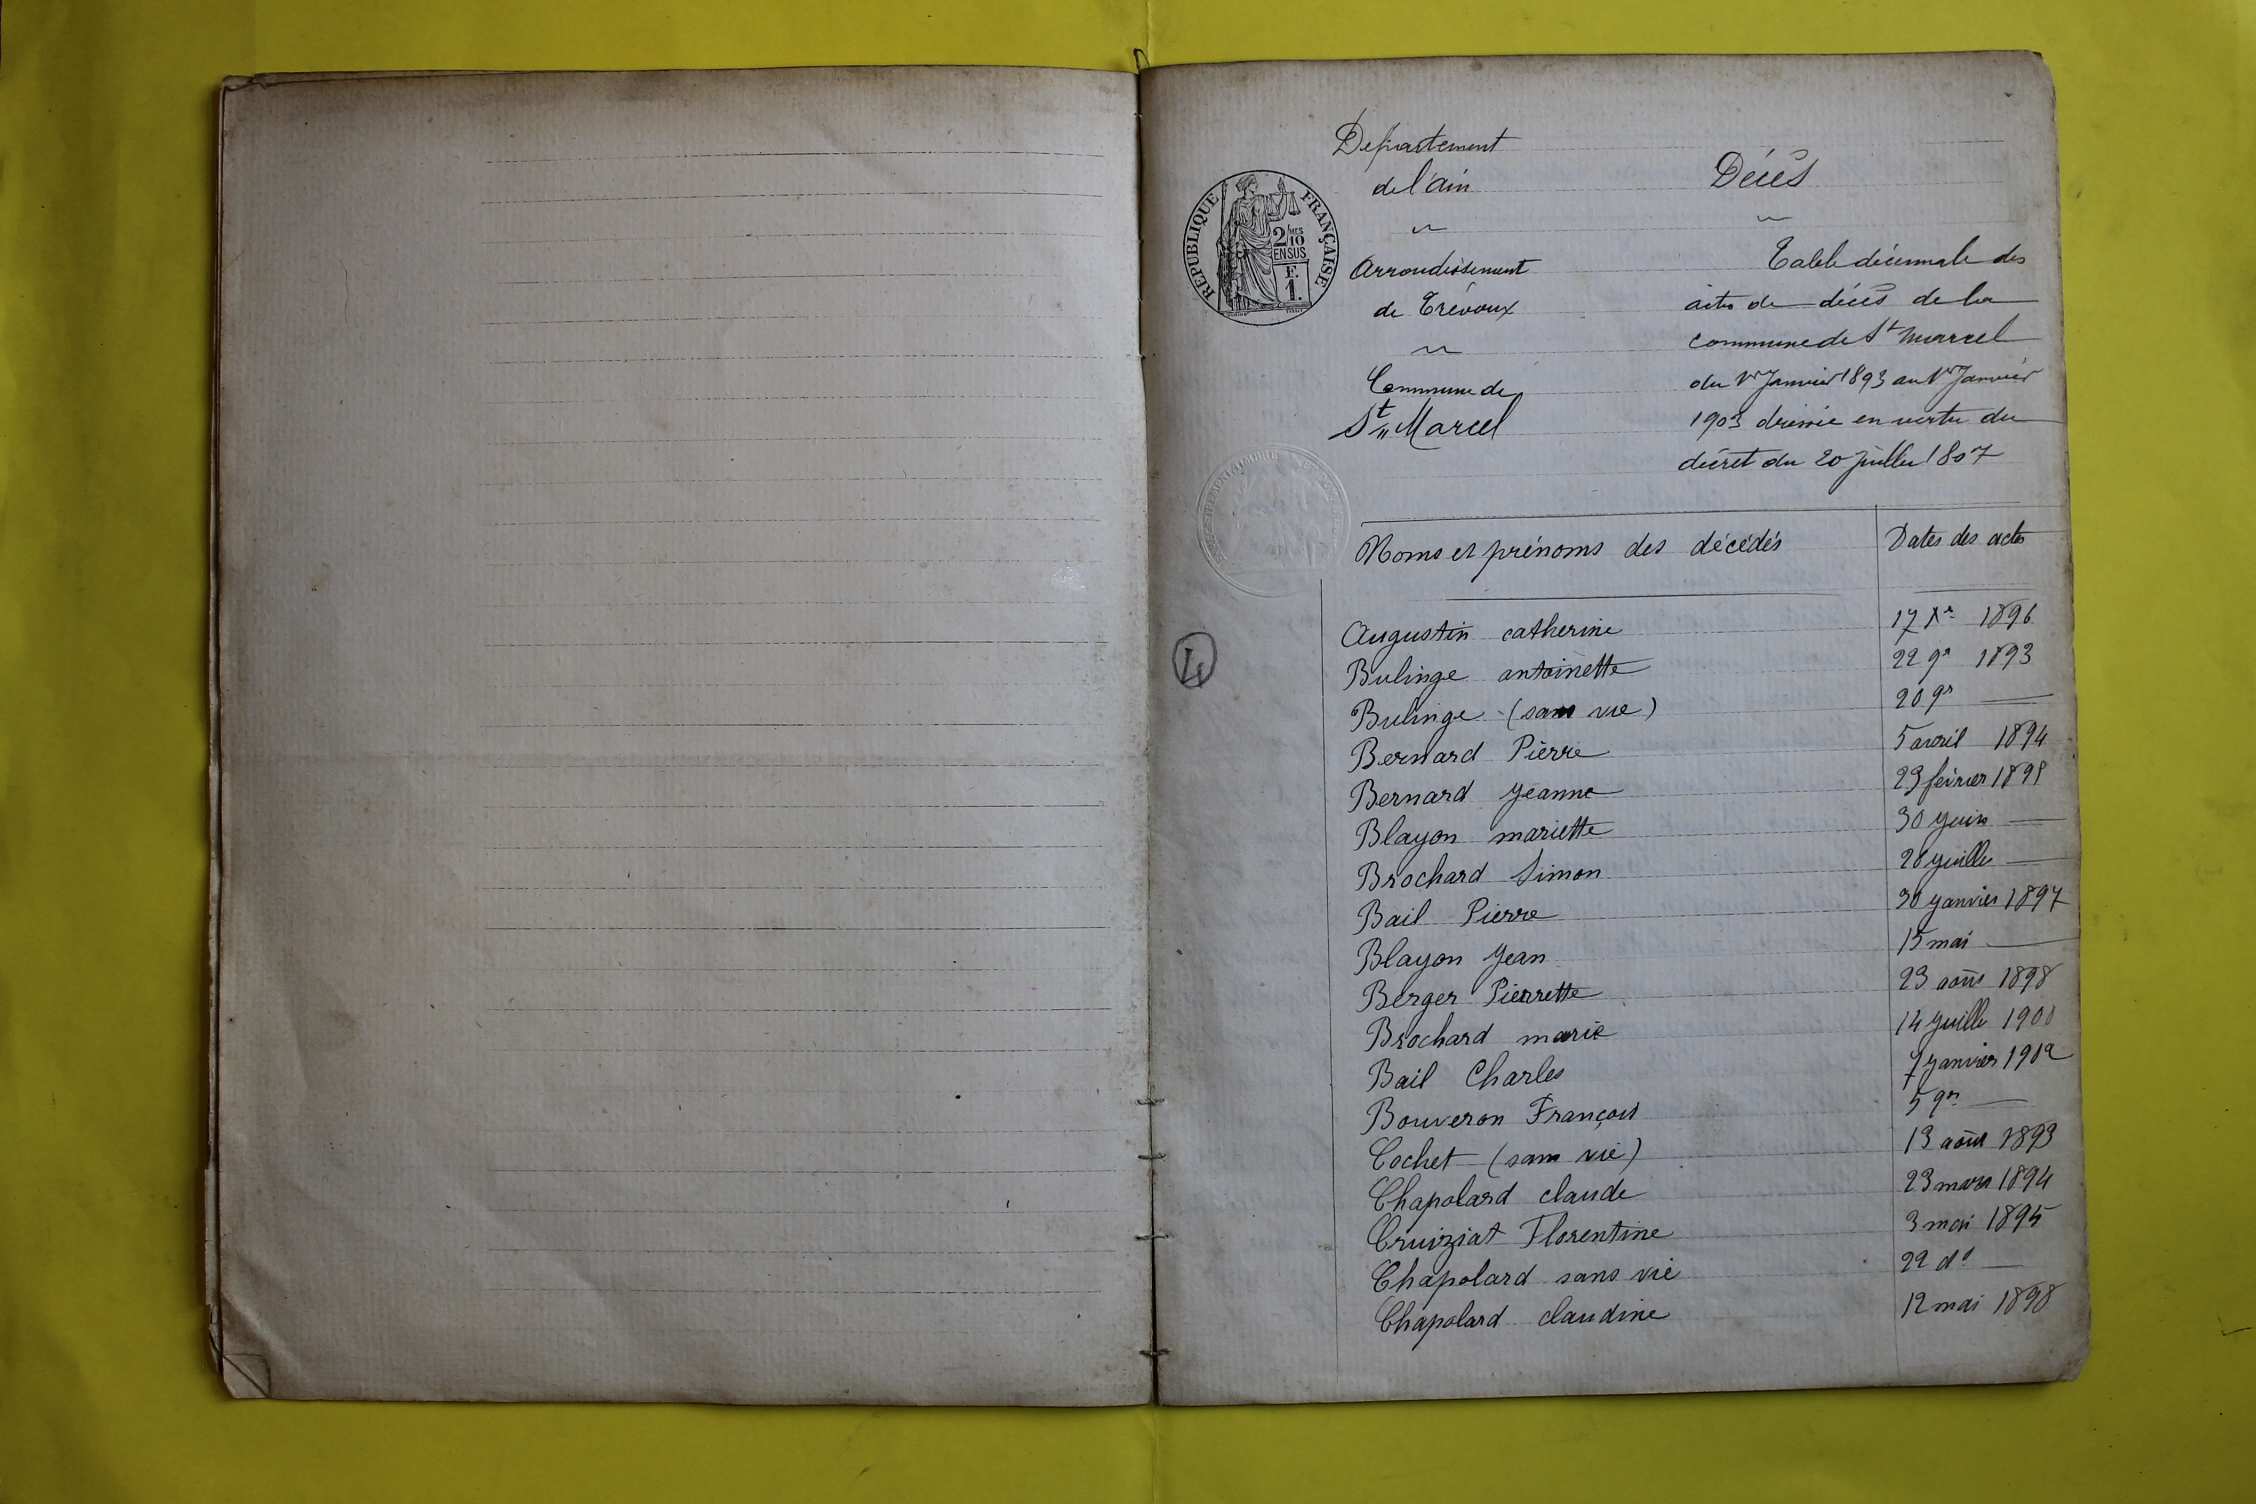 Departement
de l'ain
Arrondissement
de Trévoux
Commune de
St Marcel
REPUBLIQUE FRANÇAISE
2/10
EN SUS
F.
1.
Décès
Table décennale des
actes de décès de la
commune de St marcel
du 1er Janvier 1893 au 1er Janvier
1903 dressée en vertu du
décret du 20 Juillet 1807
4
Noms et prénoms des décédés Dates des actes
Augustin catherine 17 Xre 1896
Bulinge antoinette 22 9re 1893
Bulinge (sans vie) 20 9re —
Bernard Pierre 5 avril 1894
Bernard Jeanne 23 février 1895
Blayon mariette 30 Juin —
Brochard Simon 28 Juillet —
Bail Pierre 30 Janvier 1897
Blayon Jean 15 mai —
Berger Pierrette 23 août 1898
Brochard marie 14 Juillet 1900
Bail Charles 7 Janvier 1902
Bouveron François 5 9re —
Cochet (sans vie) 13 août 1893
Chapolard claude 23 mars 1894
Cruiziat Florentine 3 mai 1895
Chapolard sans vie 22 do —
Chapolard claudine 12 mai 1898